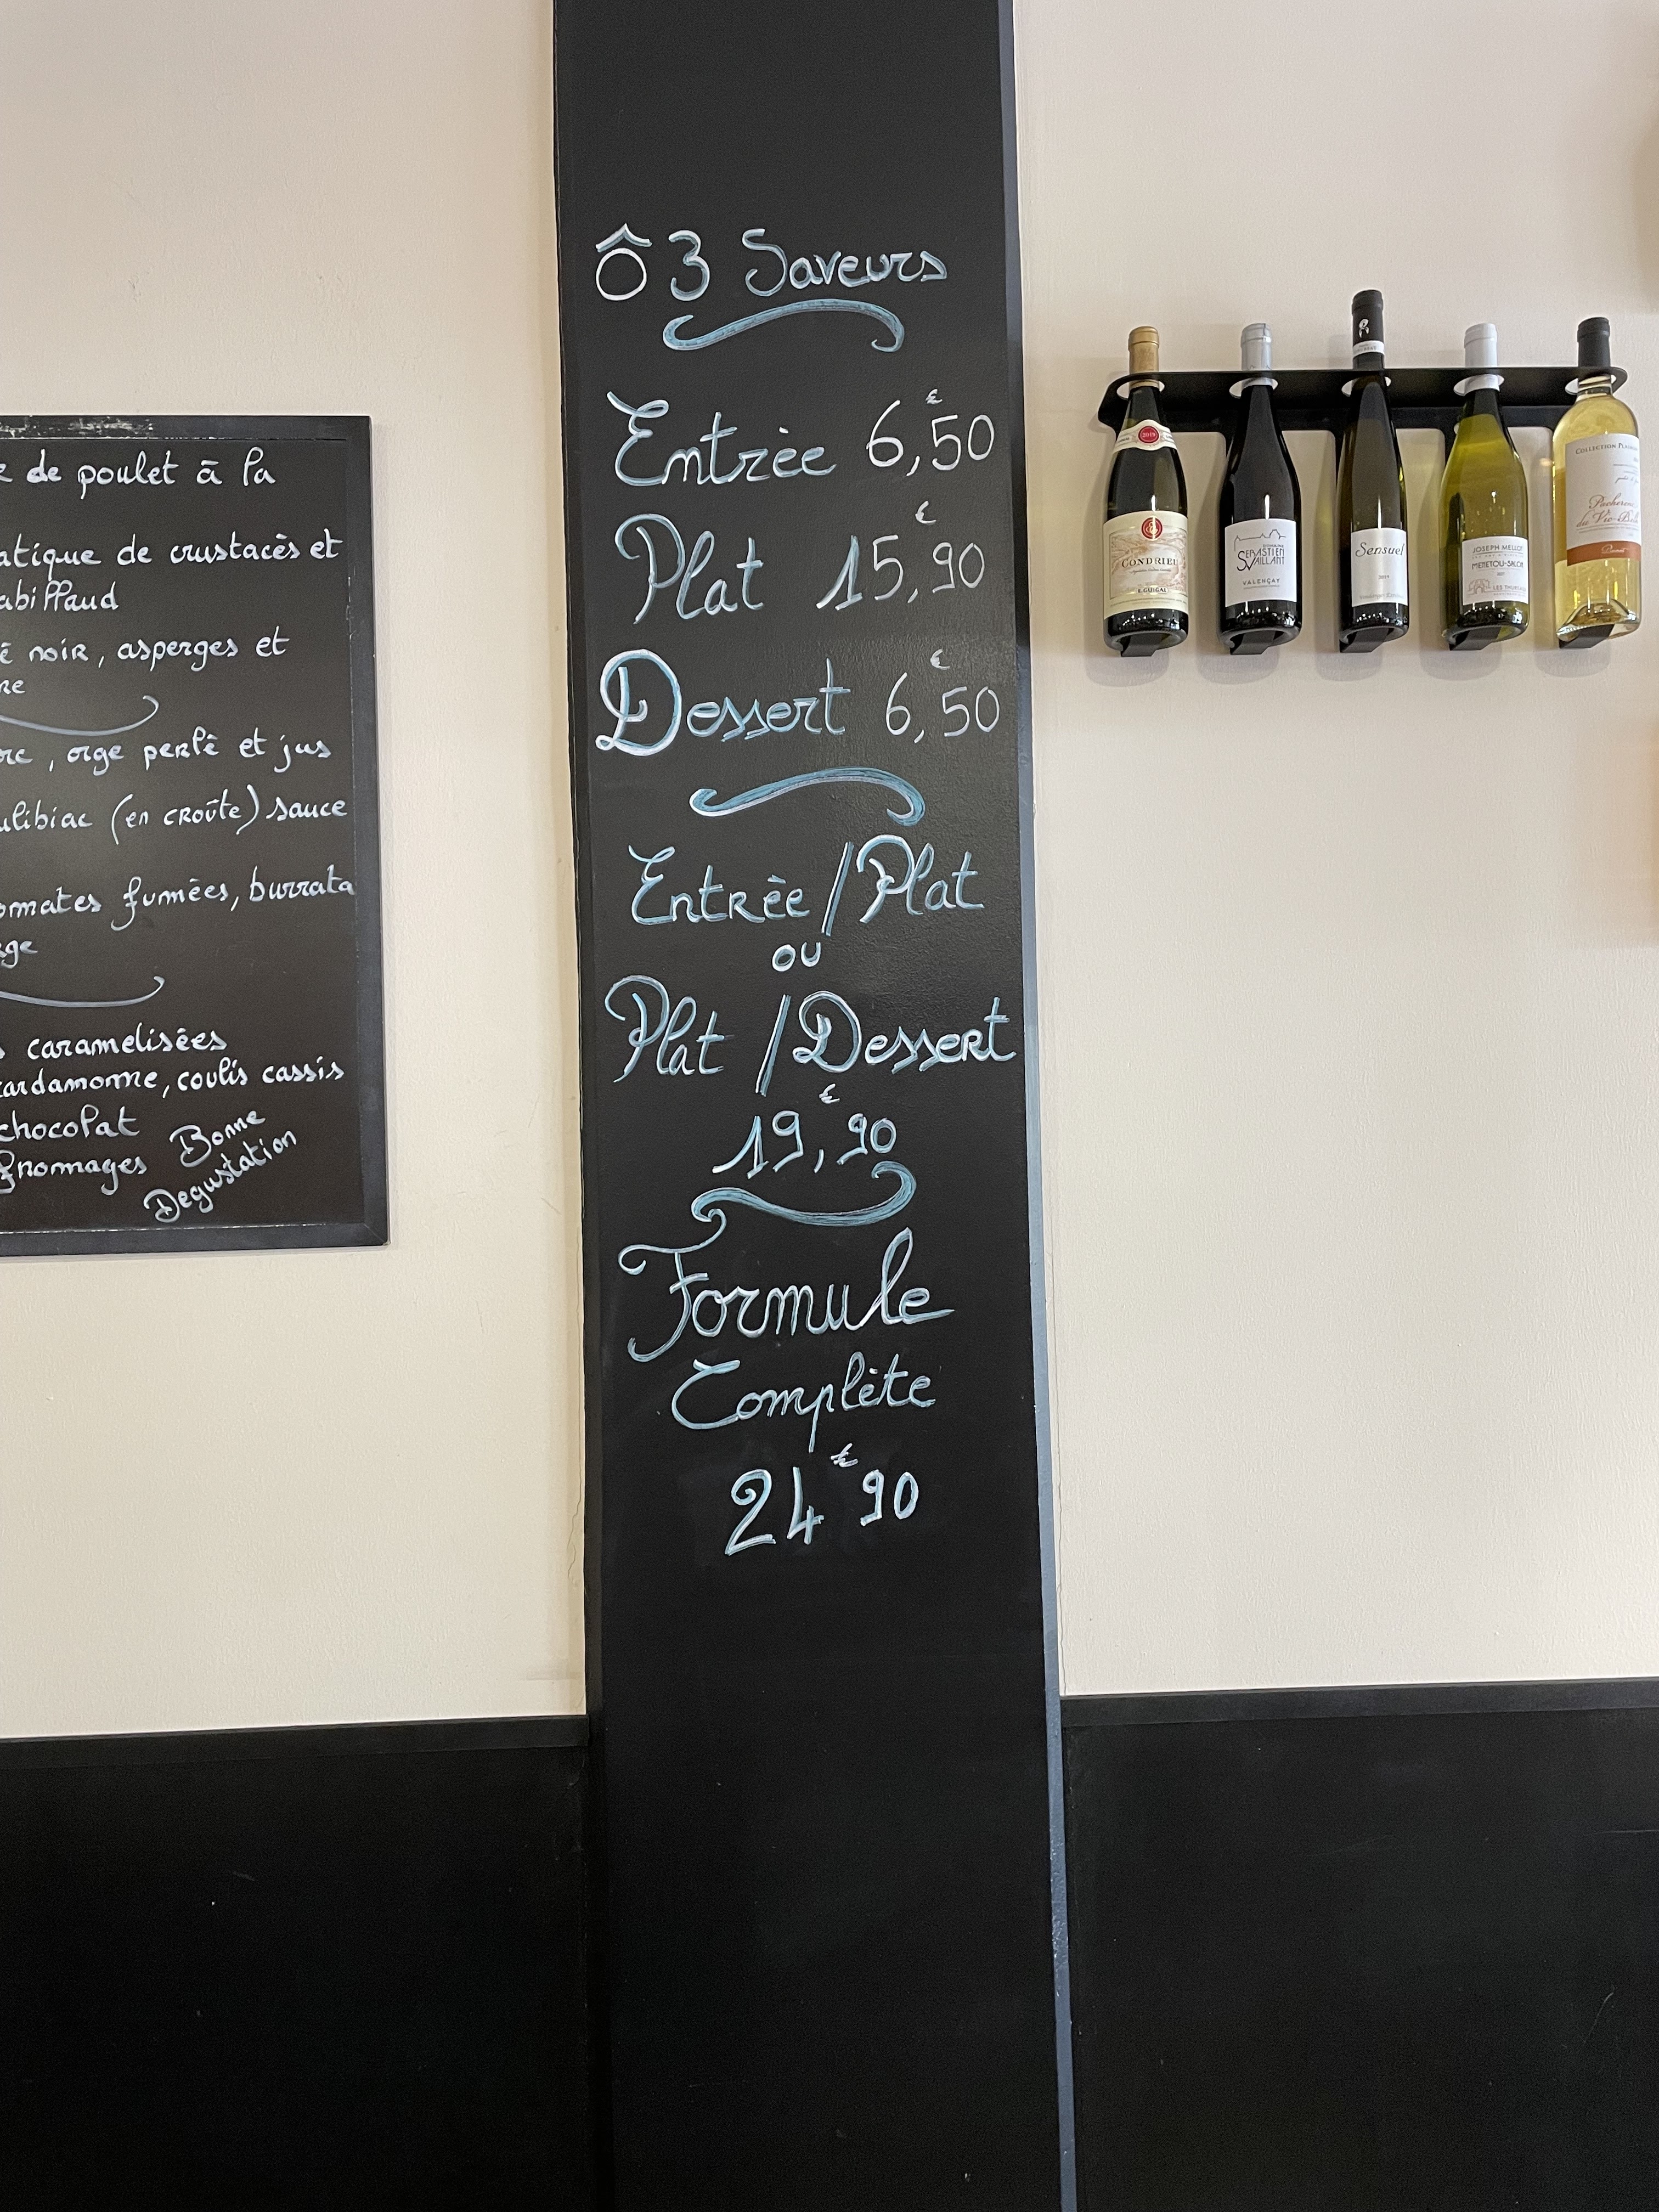 de poulet à la
crustacés et
noir, asperges et
, orge perlé et jus
(en croûte) sauce
fumées, burrata
caramelisées
cardamome, coulis cassis
chocolat
fromages
Bonne
Degustation
Ô 3 Saveurs
Entrée 6,50 €
Plat 15,90 €
Dessert 6,50 €
Entrée / Plat
ou
Plat / Dessert
19,90 €
Formule
Complète
24 € 90
2019
CONDRIEU
E. GUIGAL
DOMAINE
SÉBASTIEN
VAILLANT
VALENÇAY
Sensuel
2019
JOSEPH MELLOT
MENETOU-SALON
COLLECTION
Pacherenc
du Vic-Bilh